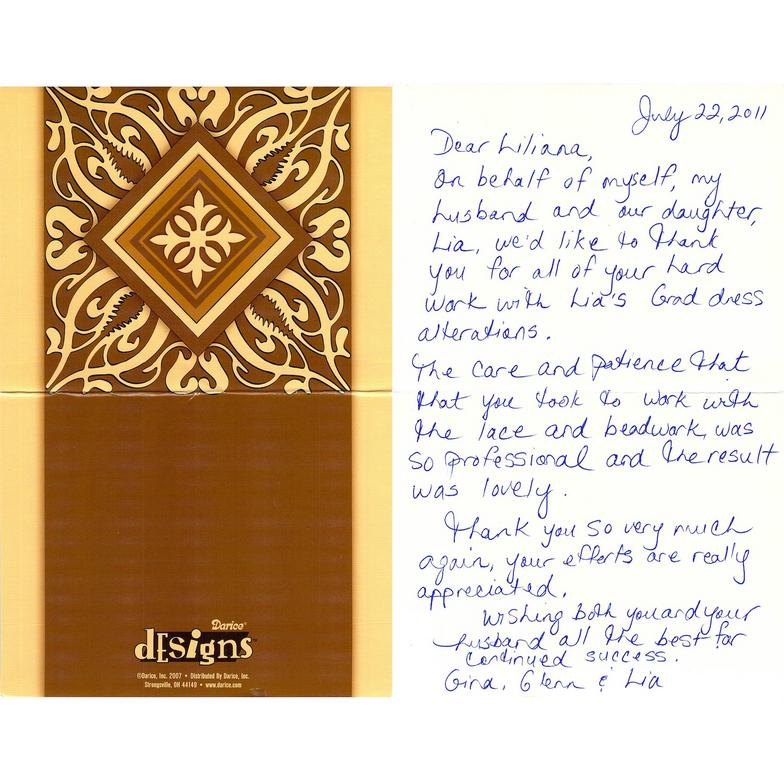 Darice®
dEsigns™
©Darice, Inc. 2007 • Distributed By Darice, Inc.
Strongsville, OH 44149 • www.darice.com
July 22, 2011
Dear Liliana,
On behalf of myself, my
husband and our daughter,
Lia, we'd like to thank
you for all of your hard
work with Lia's Grad dress
alterations.
The care and patience that
that you took to work with
the lace and beadwork, was
so professional and the result
was lovely.
Thank you so very much
again, your efforts are really
appreciated.
Wishing both you and your
husband all the best for
continued success.
Gina, Glenn & Lia